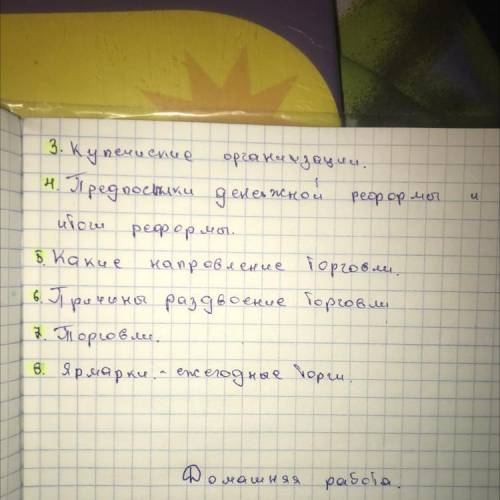 3. Купечиские организации.
4. Предпосылки денежной реформы и
итоги реформы.
5. Какие направление торговли.
6. Причины раздвоение торговли
7. Торговли.
8. Ярмарки. - ежегодные торги.
Домашняя работа.